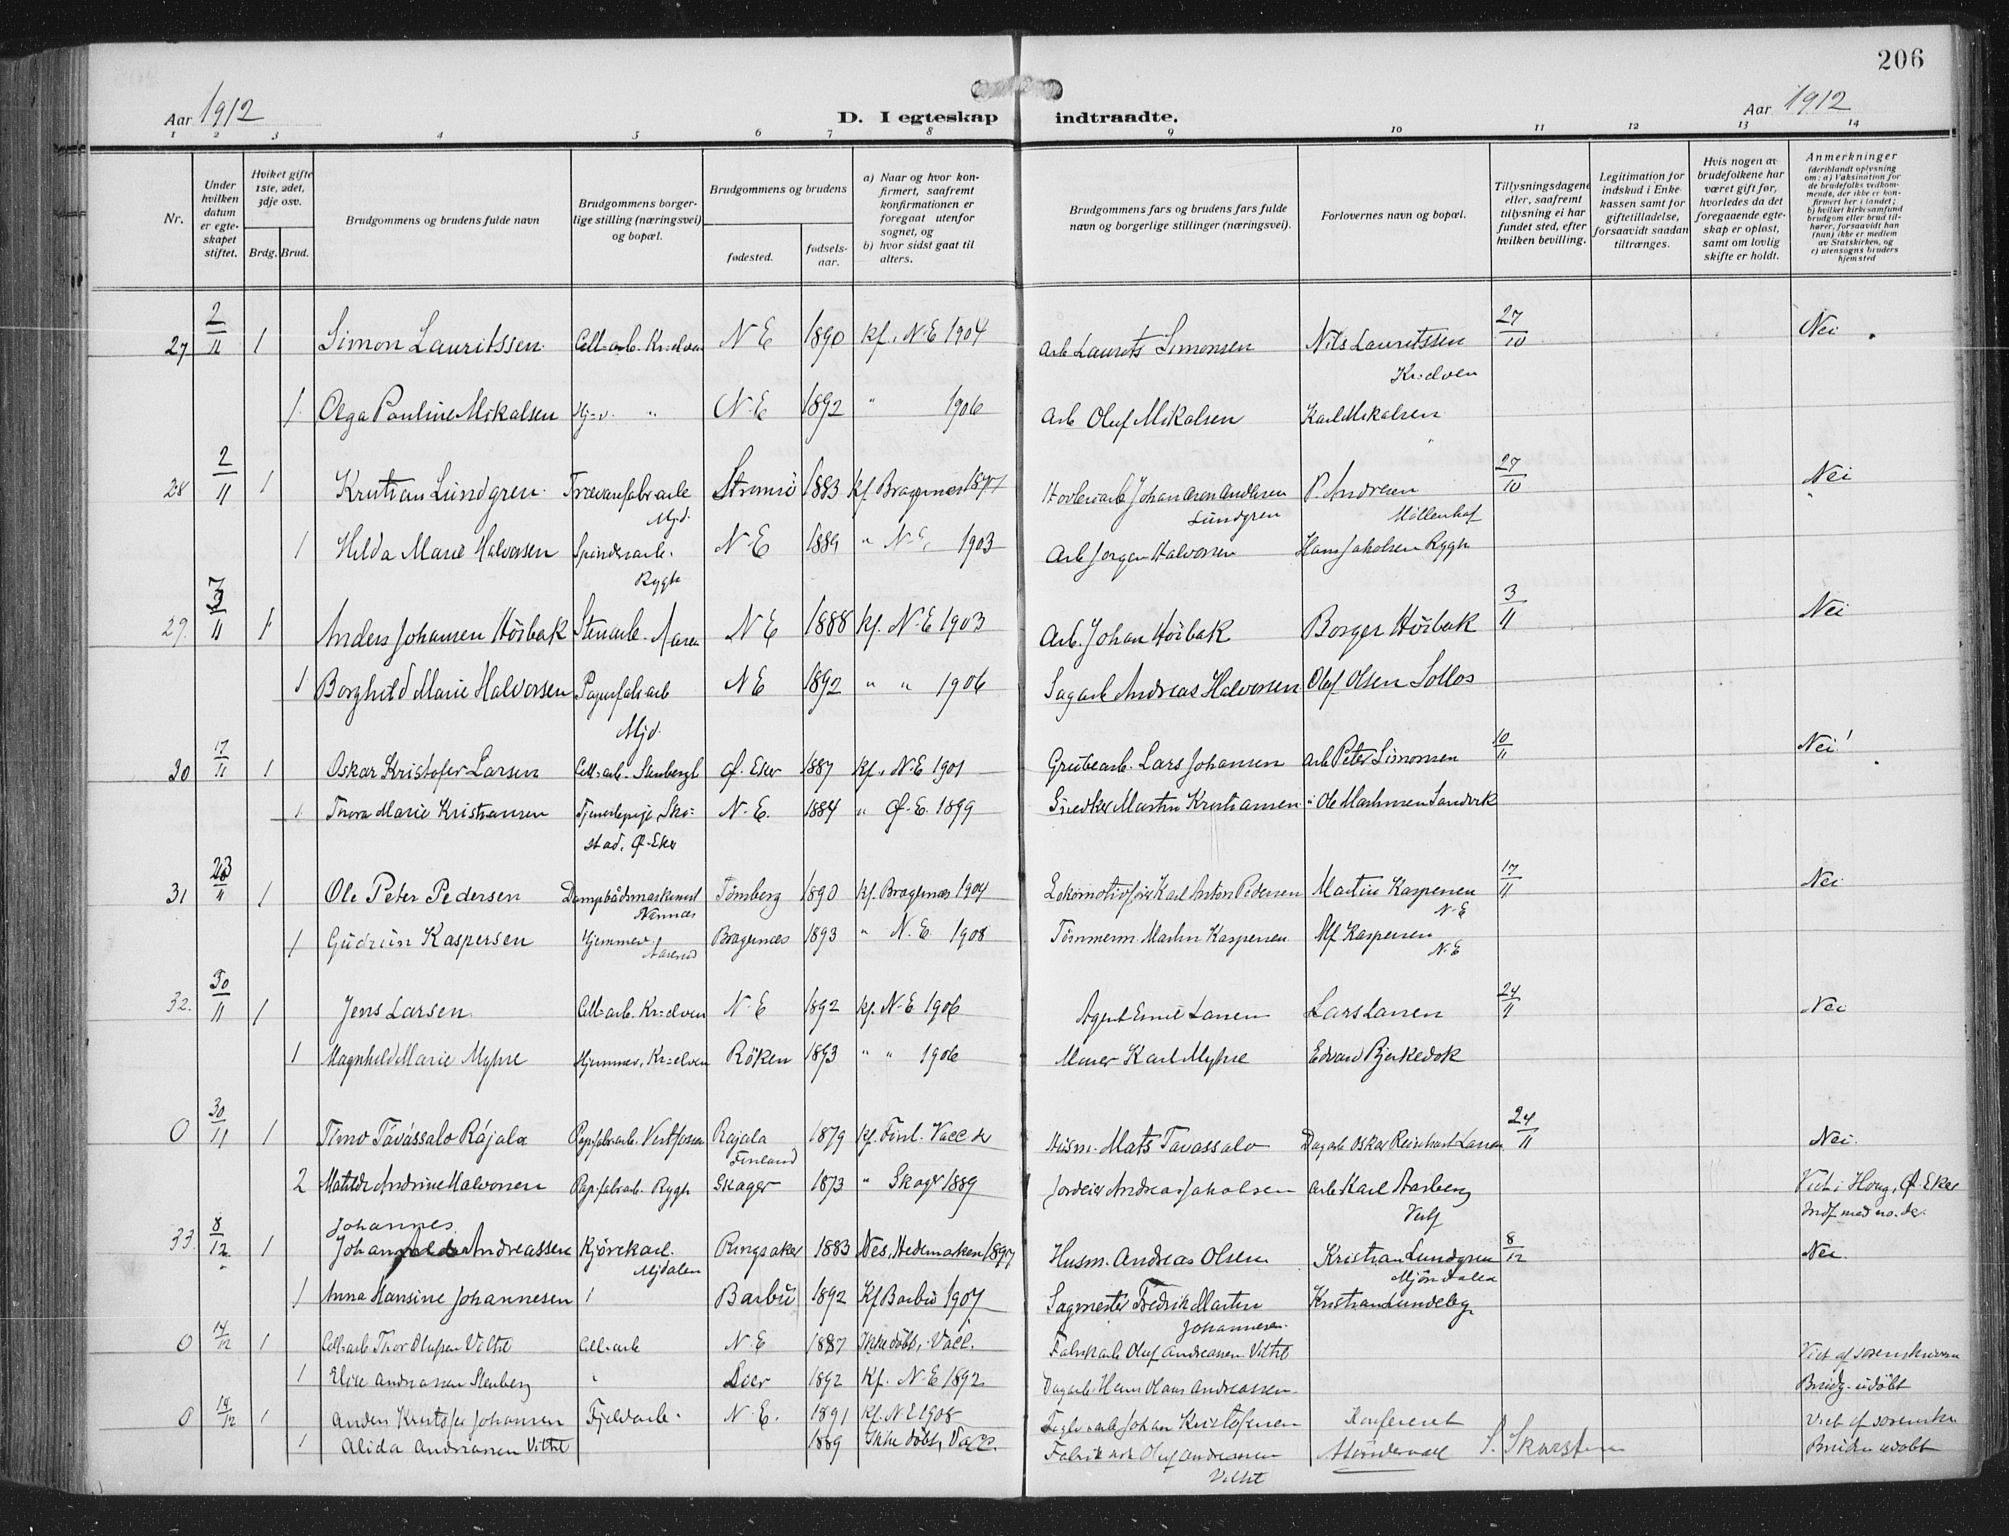 206
Aar 1912
D. I egteskap indtraadte.
Aar 1912
1 2 3 4 5 6 7 8 9 10 11 12 13 14
Nr.
Under hvilken datum er egteskapet stiftet.
Hvilket gifte 1ste, 2det, 3dje osv.
Brdg. Brud.
Brudgommens og brudens fulde navn
Brudgommens borgerlige stilling (næringsvei) og bopæl.
Brudgommens og brudens
fødested.
fødselsaar.
a) Naar og hvor konfirmert, saafremt konfirmationen er foregaat utenfor sognet, og
b) hvor sidst gaat til alters.
Brudgommens fars og brudens fars fulde navn og borgerlige stillinger (næringsvei).
Forlovernes navn og bopæl.
Tillysningsdagene eller, saafremt tillysning ei har fundet sted, efter hvilken bevilling.
Legitimation for indskud i Enkekassen samt for giftetilladelse, forsaavidt saadan tiltrænges.
Hvis nogen av brudefolkene har været gift før, hvorledes da det foregaaende egteskap er opløst, samt om lovlig skifte er holdt.
Anmerkninger (deriblandt oplysning om: a) Vaksination for de brudefolks vedkommende, der ikke er konfirmert her i landet; b) hvilket kirkesamfund brudgom eller brud tilhører, forsaavidt han (hun) ikke er medlem av Statskirken, og c) utensogns bruders hjemsted
27 2/11 1 Simon Lauritssen Cell-arb. Kr=elven N-E 1890 kf. N-E 1904 Arb Laurits Simonsen Nils Lauritssen 27/10 Nei
Kr=elven
1 Olga Pauline Mikalsen Hj=v. " N-E 1892 " 1906 Arb Oluf Mikalsen Karl Mikalsen
28 2/11 1 Kristian Lundgren Trævarefabrarb Strømsø 1883 kf Bragernes 1897 Høvleriarb Johan Andersen P. Andresen 27/10 Nei
Mjd. Lundgren Møllenhof
1 Hilda Marie Halvorsen Spinderarb. N-E 1889 " N-E, 1903 Arb Jørgen Halvorsen Hans Jakobsen Rygh
Rygh
29. 3/11 1 Anders Johansen Høibak Stenarb. Aasen N E 1888 kf. N-E 1903 Arb. Johan Høibak Borger Høibak 3/11 Nei
1 Borghild Marie Halvorsen Papirfabrarb N E 1892 " " 1906 Sagarb Andreas Halvorsen Olaf Olsen Sollos
Mjd.
30 17/11 1 Oskar Kristofer Larsen Cell=arb. Stenbergl Ø. Eker 1887 kf. N-E 1901 Grubearb. Lars Johansen arb Peter Simonsen 10/11 Nei!
1 Thora Marie Kristiansen Tjenestepige, Sko- N-E. 1884 " Ø-E. 1899 Snedker Martin Kristiansen " Ole Mathisen Sandvik
stad, Ø-Eker
31 23/11 1 Ole Peter Pedersen Dampbådsmaskinist Tønsberg 1890 kf. Bragernes 1904 Lokomotivfører Karl Anton Pedersen Martin Kaspersen 17/11 Nei
N-E
1 Gudrun Kaspersen Hjemmev. Bragernes 1893 " N.E 1908 Tømmerm. Martin Kaspersen Alf Kaspersen
N-E
32. 30/11 1 Jens Larsen Cell=arb. Kr=elven N-E 1892 kf. N-E 1906 Agent Emil Larsen Lars Larsen 24/11 Nei
1 Magnhild Marie Myhre Hjemmev, Kr=elven Røken 1893 " " 1906 Murer Karl Myhre Edvard Bjerkedok
0 30/11 1 Timo Tavassalo Rajala Papfabrarb. Vestfossen Rajala 1879 kf. Finl. Husm. Mats Tavassalo Dagarb Oskar Reinhart Larsen 24/11 Nei.
Finland
2 Matilde Andrine Halvorsen Papfabrarb Rygh Skoger 1873 " Skoger 1889 Jordeier Andreas Jakobsen arb Karl Aasberg Viet i Houg, Ø-Eker
Vestf
33. 8/12 1 Johannes Andreassen Kjørekarl. Ringsaker 1883 Nes, Hedemarken 1897 Husm. Andreas Olsen Kristian Lundgren 8/12 Nei.
Mjdalen Mjøndalen
1 Anna Hansine Johannesen " Barbu 1892 Kf Barbu 1907 Sagmester Fredrik Martin Kristian Lundeby
Johannesen
0 14/12 1 Cell-arb Thor Olufsen Vilhet Cell-arb N-E 1887 Ikke døbt, Vacc. Fabrikarb Oluf Andreassen Vilhet Viet af sorenskriveren
1 Elise Andreassen Stenberg " Lier 1892 Kf. N-E 1892 Dagarb Hans Olaus Andreassen Brudg. udøbt
0 14/12 1 Anders Kristofer Johansen Fjeldarb. N-E. 1891 kf. N E 1908 Teglv arb Johan Kristofersen Konfereret Viet af sorenskr
1 Alida Andreassen Vilhet 1889 Ikke døbt, Vacc. Fabrikarb Oluf Andreassen S. Skarsten Bruden udøbt
Vilhet